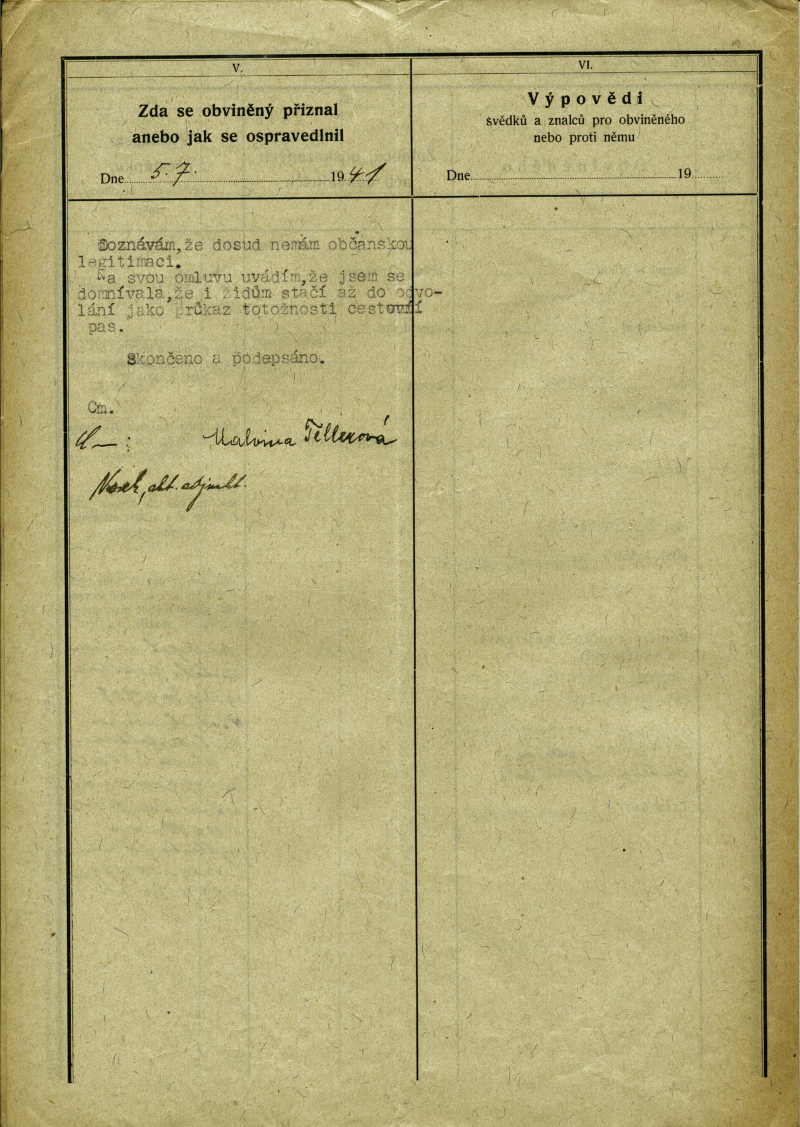 V.
Zda se obviněný přiznal
anebo jak se ospravedlnil
Dne 5. 7. 1941
Doznávám,že dosud nemám občanskou
legitimaci.
Na svou omluvu uvádím,že jsem se
domnívala,že i židům stačí až do odvo-
lání jako průkaz totožnosti cestovní
pas.
Skončeno a podepsáno.
Cm.
Malvina Tellerová
VI.
Výpovědi
svědků a znalců pro obviněného
nebo proti němu
Dne 19